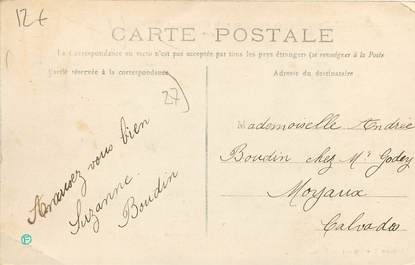 12€
CARTE POSTALE
La Correspondance au verso n'est pas acceptée par tous les pays étrangers (se renseigner à la Poste
Partie réservée à la correspondance
Adresse du destinataire
27
Amusez vous bien
Suzanne
Boudin
Mademoiselle Andrée
Boudin chez Mr Godey
Moyaux
Calvados